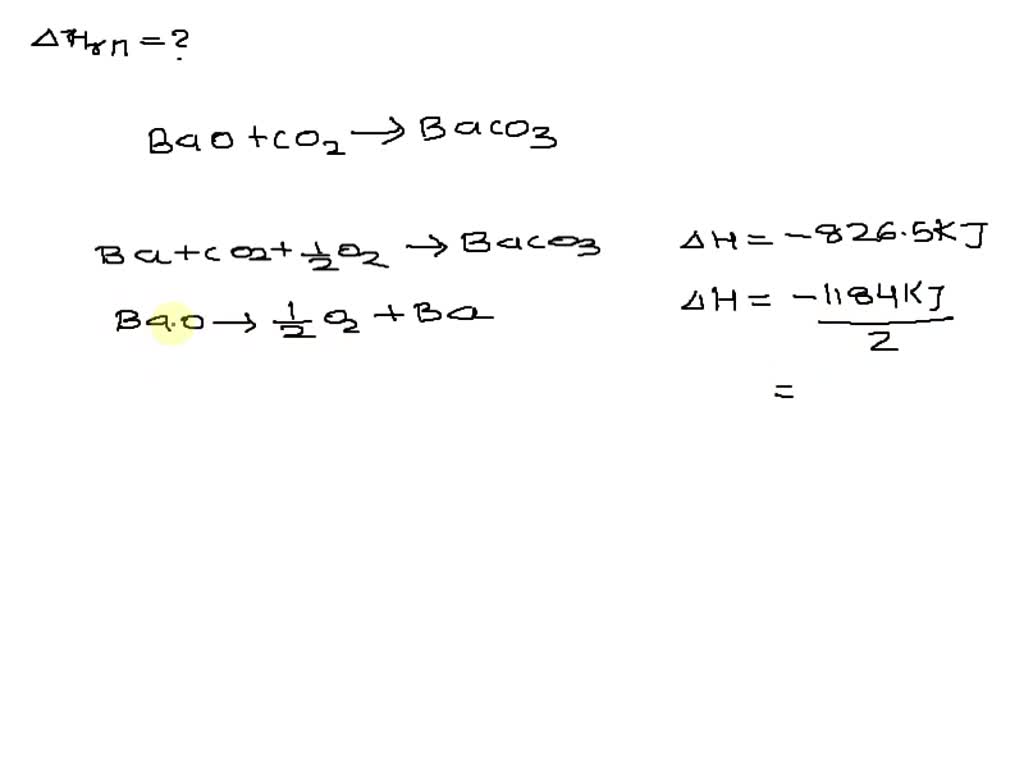 ΔHrn = ?
BaO + CO2 → BaCO3
Ba + CO2 + 1/2 O2 → BaCO3 ΔH = -826.5KJ
BaO → 1/2 O2 + Ba ΔH = -1184KJ/2
=